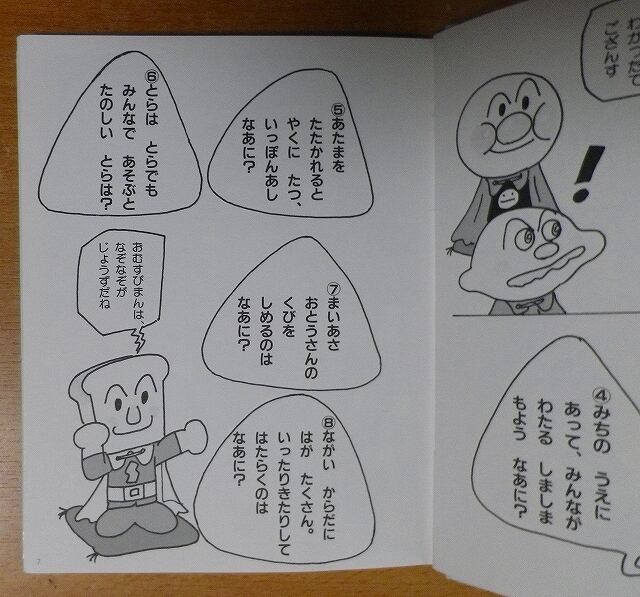 わかったで
ござんす
!
④みちの うえに
あって、みんなが
わたる しましま
もよう なあに?
⑤あたまを
たたかれると
やくに たつ、
いっぽんあし
なあに?
⑥とらは とらでも
みんなで あそぶと
たのしい とらは?
⑦まいあさ
おとうさんの
くびを
しめるのは
なあに?
⑧ながい からだに
はが たくさん。
いったりきたりして
はたらくのは
なあに?
おむすびまんは
なぞなぞが
じょうずだね
7